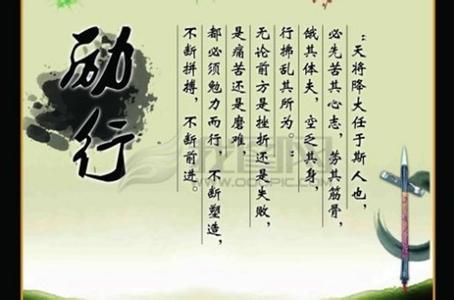 励行
：天将降大任于斯人也，
必先苦其心志，劳其筋骨，
饿其体夫，空乏其身，
行拂乱其所为。：
无论前方是挫折还是失败，
是痛苦还是磨难
都必须勉力而行，不断塑造，
不断拼搏，不断前进。
我图网
WWW.OOOPIC.COM